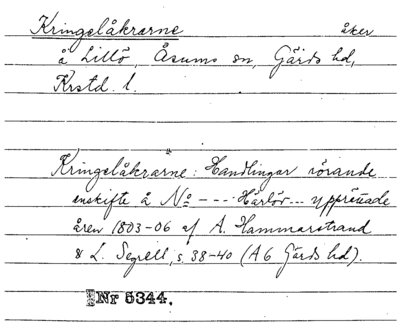 Kringelåkrarne åker
å Lillö, Åsums sn, Gärds hd,
Krstd. l.
Kringelåkrarne: Handlingar rörande
enskifte å No --- Härlöv... upprättade
åren 1803-06 af A. Hammarstrand
& L. Segrell, s. 38-40 (A6 Gärds hd).
Nr 5344.